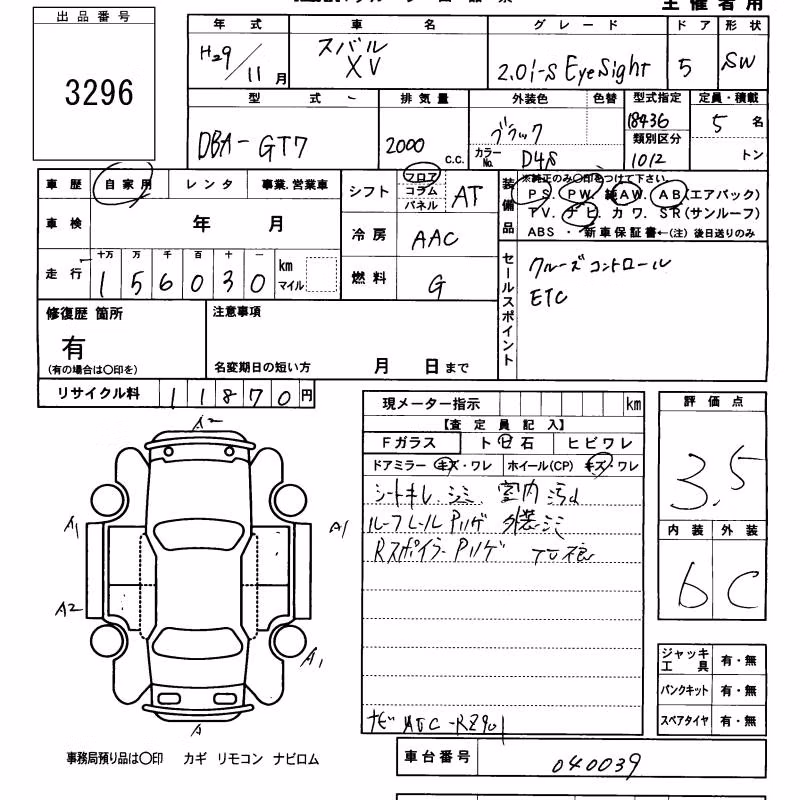 主催者用
出品番号
3296
年式 車名 グレード ドア 形状
H29/11月 スバル XV 2.0i-S EyeSight 5 SW
型式 排気量 外装色 色替 型式指定 定員・積載
DBA-GT7 2000 c.c. ブラック 18436 5名
カラーNo. D4S 類別区分 1012 トン
車歴 自家用 レンタ 事業.営業車
シフト フロア コラム パネル AT
装備品 ※純正のみ〇印をつけて下さい.
PS. PW. 純AW. AB(エアバック)
TV. ナビ. カワ. SR(サンルーフ)
ABS ・ 新車保証書←(注) 後日送りのみ
車検 年 月
冷房 AAC
走行 十万 万 千 百 十 一 km マイル
156030
燃料 G
セールスポイント クルーズコントロール
ETC
修復歴 箇所
有
(有の場合は〇印を)
注意事項
名変期日の短い方 月 日まで
リサイクル料 11870円
現メーター指示 km
【査定員記入】
Fガラス ト石 ヒビワレ
ドアミラー キズ・ワレ ホイール(CP) キズ・ワレ
シートキレ、シミ、室内汚れ
ルーフレールPハゲ 外装シミ
RスポイラーPハゲ TV痕
ナビ ATC-RZ901
評価点
3.5
内装 外装
6 C
A2
A1 A1
A2
A1
A
ジャッキ工具 有・無
パンクキット 有・無
スペアタイヤ 有・無
事務局預り品は〇印 カギ リモコン ナビロム
車台番号 040039